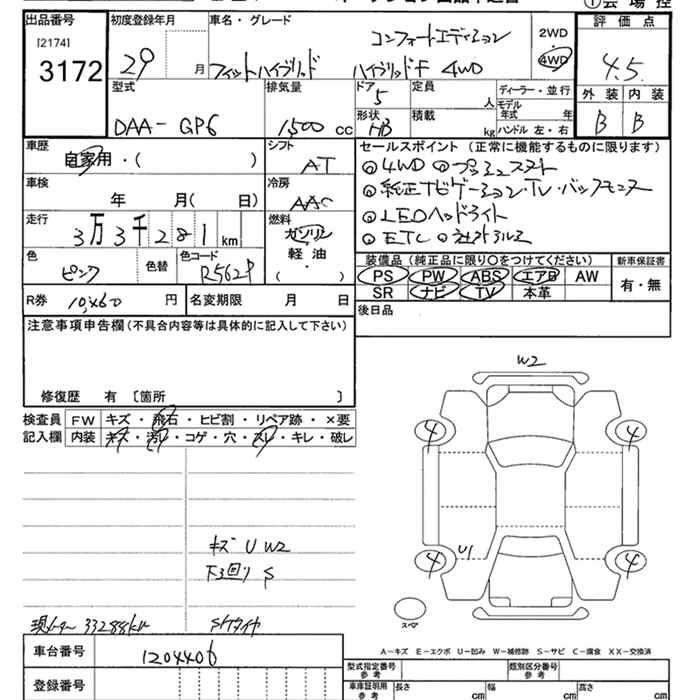 出品番号
[2174]
3172
初度登録年月
29 月
車名・グレード
コンフォートエディション
フィットハイブリッド ハイブリッドF 4WD
2WD
4WD
評価点
4.5
外装 内装
B B
型式
DAA- GP6
排気量
1500 cc
ドア
5
定員
人
形状
HB
積載
kg
ディーラー・並行
モデル年式 年
ハンドル 左・右
車歴
自家用・( )
シフト
AT
車検
年 月( 日)
冷房
AAC
走行
3万3千281km
燃料
ガソリン
軽油
・( )
色
ピンク
色替
色コード
R562P
R券
10,460 円
名変期限 月 日
セールスポイント (正常に機能するものに限ります)
◎4WD ◎プッシュスタート
◎純正ナビゲーション・TV・バックモニター
◎LEDヘッドライト
◎ETC ◎社外アルミ
装備品(純正品に限り○をつけてください)
PS PW ABS エアB AW
SR ナビ TV 本革
新車保証書
有・無
後日品
注意事項申告欄(不具合内容等は具体的に記入して下さい)
修復歴 有 〔箇所 〕
検査員記入欄
FW キズ・飛石・ヒビ割・リペア跡・×要
内装 キズ・汚れ・コゲ・穴・スレ・キレ・破レ
キズ U W2
下回り S
現メーター 33288km
S/Wタイヤ
W2
4
4
4
4
U1
スペア
A-キズ E-エクボ U-凹み W-補修跡 S-サビ C-腐食 XX-交換済
車台番号
1204406
登録番号
型式指定番号 参考
類別区分番号 参考
車庫証明用 参考
長さ cm
幅 cm
高さ cm